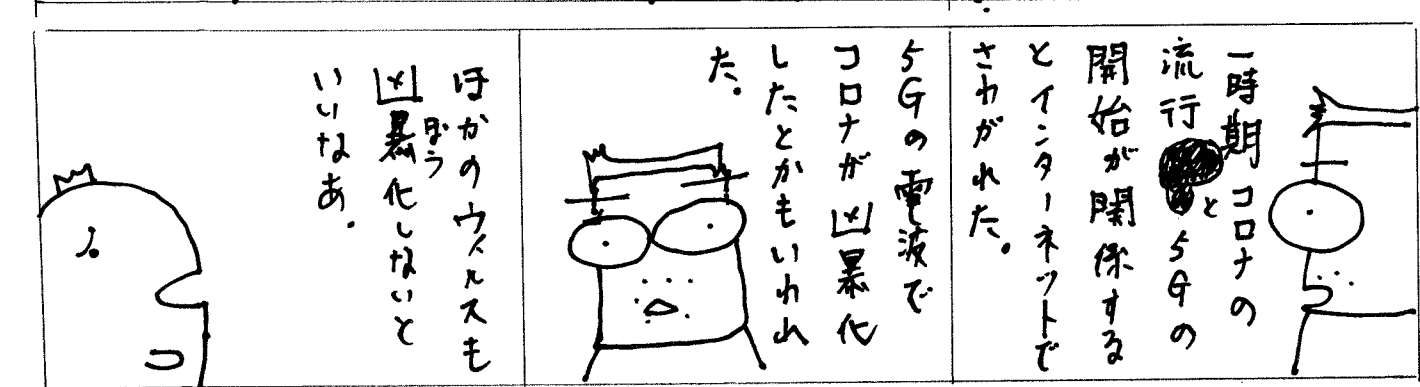 一時期コロナの
流行と5Gの
開始が関係する
とインターネットで
さわがれた。
5Gの電波で
コロナが凶暴化
したとかもいわれ
た。
ほかのウィルスも
凶暴化しないと
ぼう
いいなあ。